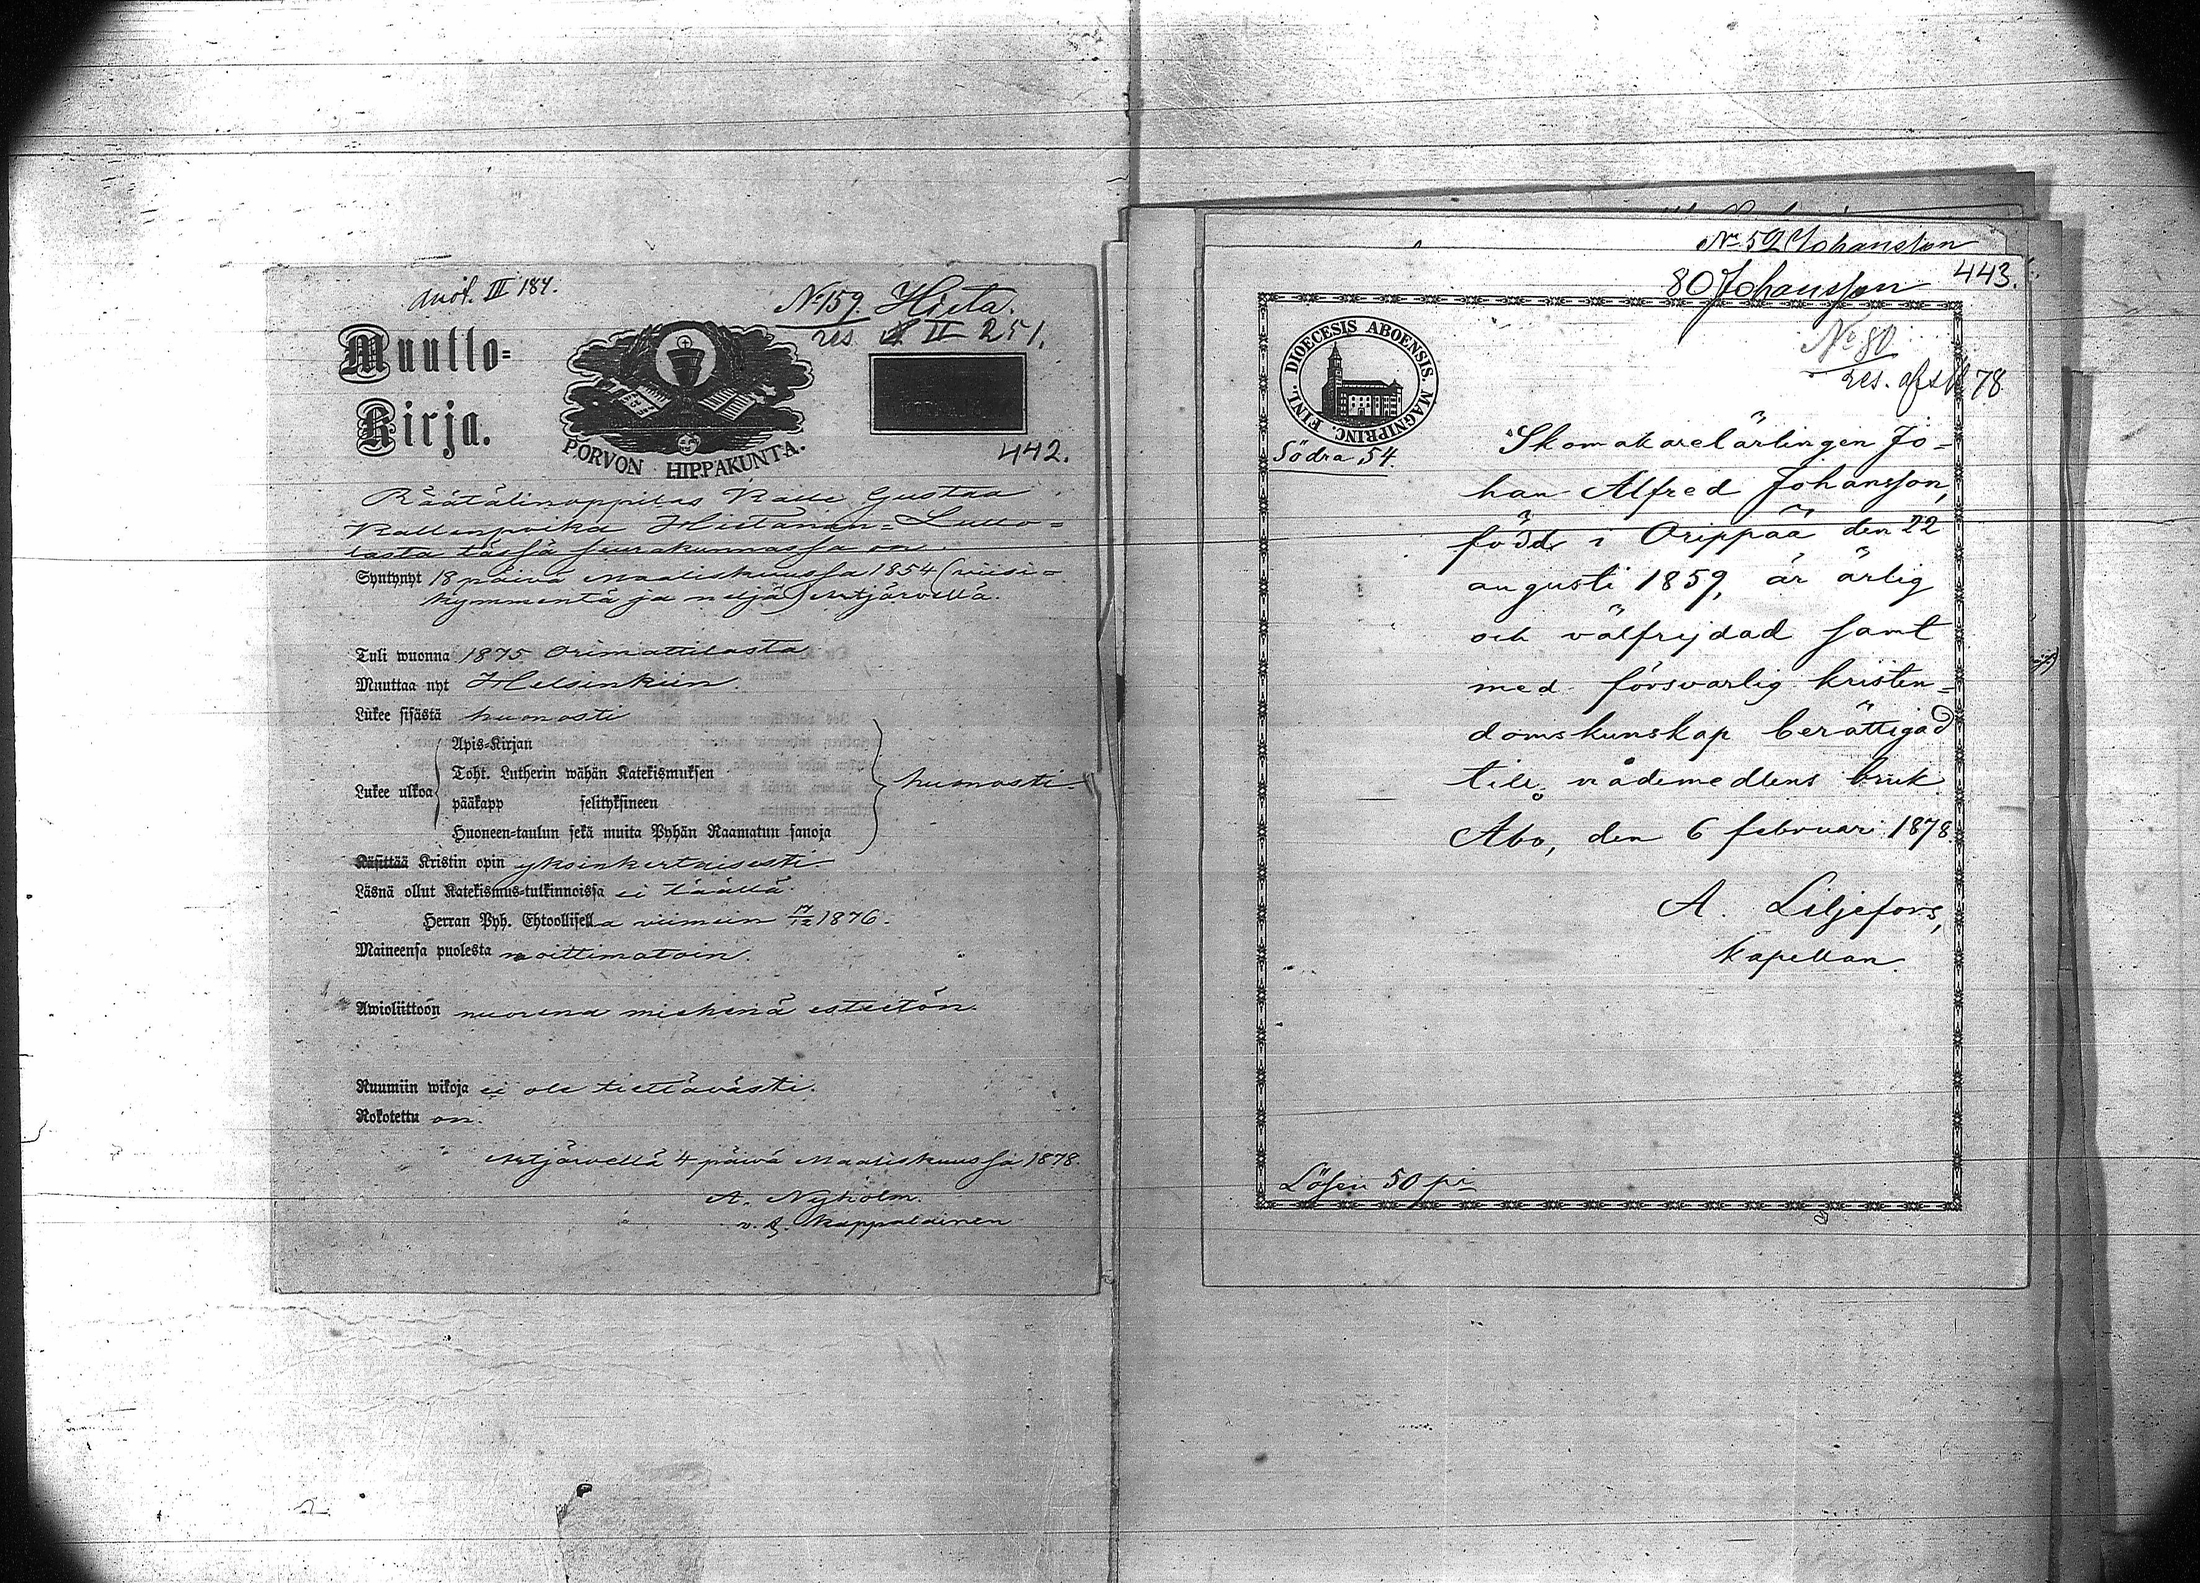 anot. III 184.
No 159. Hieta.
res. II 251.
Muutto-
Kirja.
PORVON HIPPAKUNTA.
442.
Räätälinoppilas Kalle Gustaa
Kallenpoika Hietanan-Luuo-
lasta tässä seurakunnassa on
Syntynyt 18 päivä Maaliskuussa 1854 (viisi-
kymmentä ja neljä) Artjärvellä.
Tuli wuonna 1875 Orimattilasta
Muuttaa nyt Helsinkiin.
Lukee sisästä huonosti
Lukee ulkoa
Apis-Kirjan
Toht. Lutherin wähän Katekismuksen
pääkapp selityksineen
Huoneen-taulun sekä muita Pyhän Raamatun sanoja
huonosti.
Käsittää Kristin opin yksinkertaisesti
Läsnä ollut Katekismus-tutkinnoissa ei täällä.
Herran Pyh. Ehtoollisella viimein 17/12 1876.
Maineensa puolesta moittimatoin.
Awioliittoon nuorena miehenä esteetön.
Ruumiin wikoja ei ole tiettävästi.
Rokotettu on.
Artjärvellä 4 päivä Maaliskuussa 1878.
A. Nyholm.
v. t. Kappalainen
No 52 Johansson
80 Johansson 443.
No 80
res. afsl 78
DIOECESIS ABOENSIS. MAGNIPRINC. FINL.
Södra, 54.
Skomakarelärlingen Jo-
han Alfred Johansson,
född i Orippää den 22
augusti 1859, är ärlig
och välfrejdad samt
med försvarlig kristen-
domskunskap berättigad
till nådemedlens bruk.
Åbo, den 6 februari 1878.
A. Liljefors,
Kapellan.
Lösen 50 pi